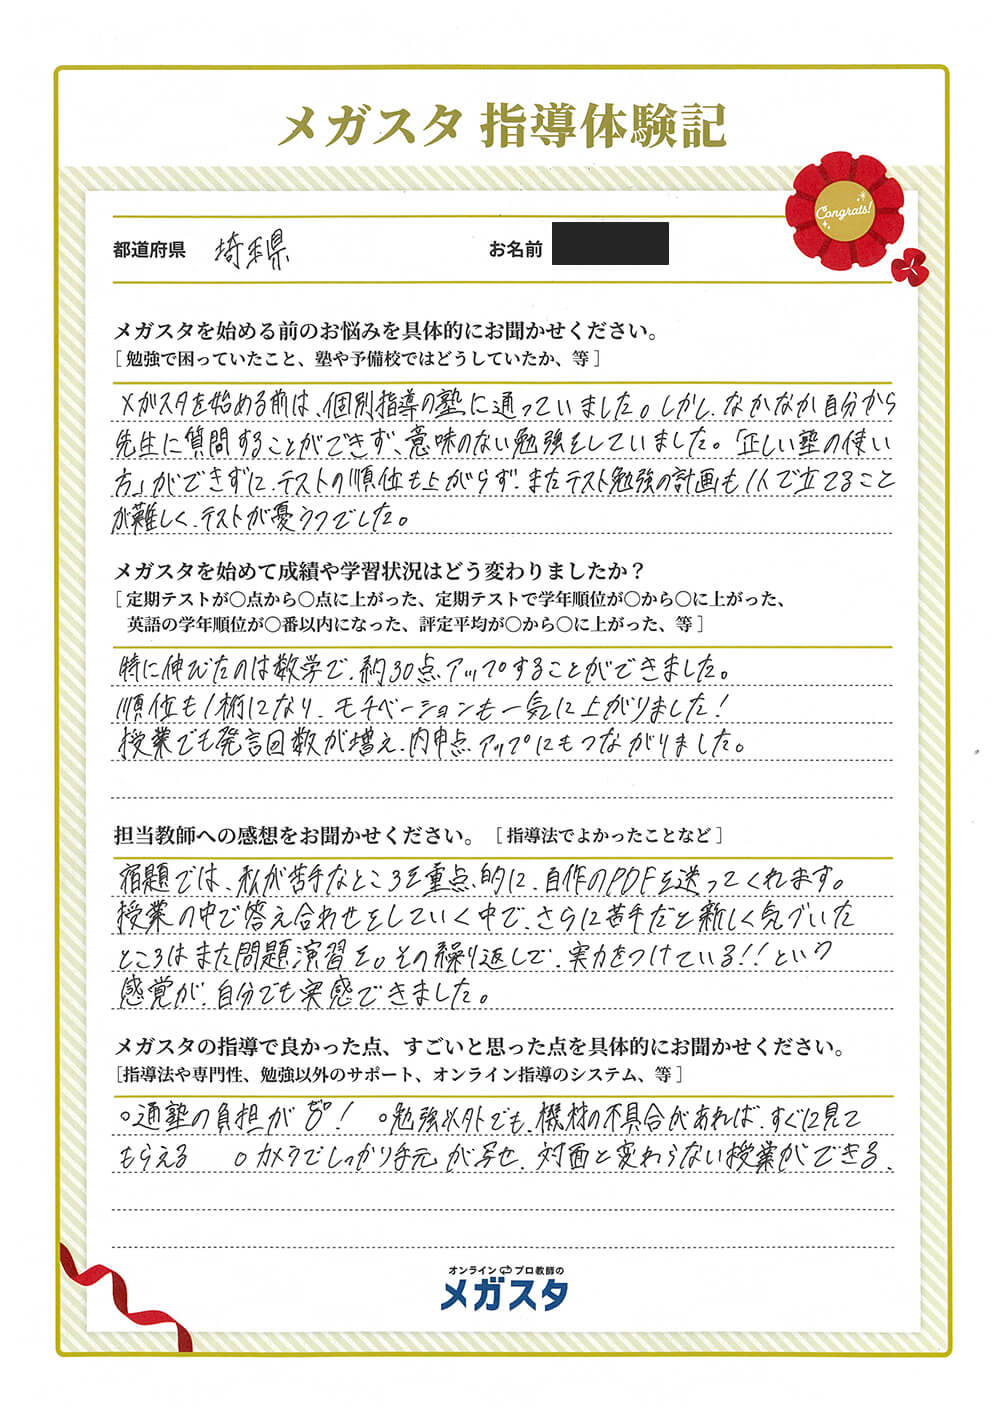 メガスタ 指導体験記
Congrats!
都道府県 埼玉県 お名前
メガスタを始める前のお悩みを具体的にお聞かせください。
[ 勉強で困っていたこと、塾や予備校ではどうしていたか、等 ]
メガスタを始める前は、個別指導の塾に通っていました。しかし、なかなか自分から
先生に質問することができず、意味のない勉強をしていました。「正しい塾の使い
方」ができずに、テストの順位も上がらず、またテスト勉強の計画も1人で立てること
が難しく、テストが憂うつでした。
メガスタを始めて成績や学習状況はどう変わりましたか？
[ 定期テストが〇点から〇点に上がった、定期テストで学年順位が〇から〇に上がった、
英語の学年順位が〇番以内になった、評定平均が〇から〇に上がった、等 ]
特に伸びたのは数学で、約30点アップすることができました。
順位も1桁になり、モチベーションも一気に上がりました！
授業でも発言回数が増え、内申点アップにもつながりました。
担当教師への感想をお聞かせください。 [ 指導法でよかったことなど ]
宿題では、私が苦手なところを重点的に、自作のPDFを送ってくれます。
授業の中で答え合わせをしていく中で、さらに苦手だと新しく気づいた
ところはまた問題演習を。その繰り返しで、実力をつけている!!という
感覚が、自分でも実感できました。
メガスタの指導で良かった点、すごいと思った点を具体的にお聞かせください。
[指導法や専門性、勉強以外のサポート、オンライン指導のシステム、等 ]
○通塾の負担が ゼロ! ○勉強以外でも、機材の不具合があれば、すぐに見て
もらえる ○カメラでしっかり手元が写せ、対面と変わらない授業ができる、
オンライン プロ教師の
メガスタ